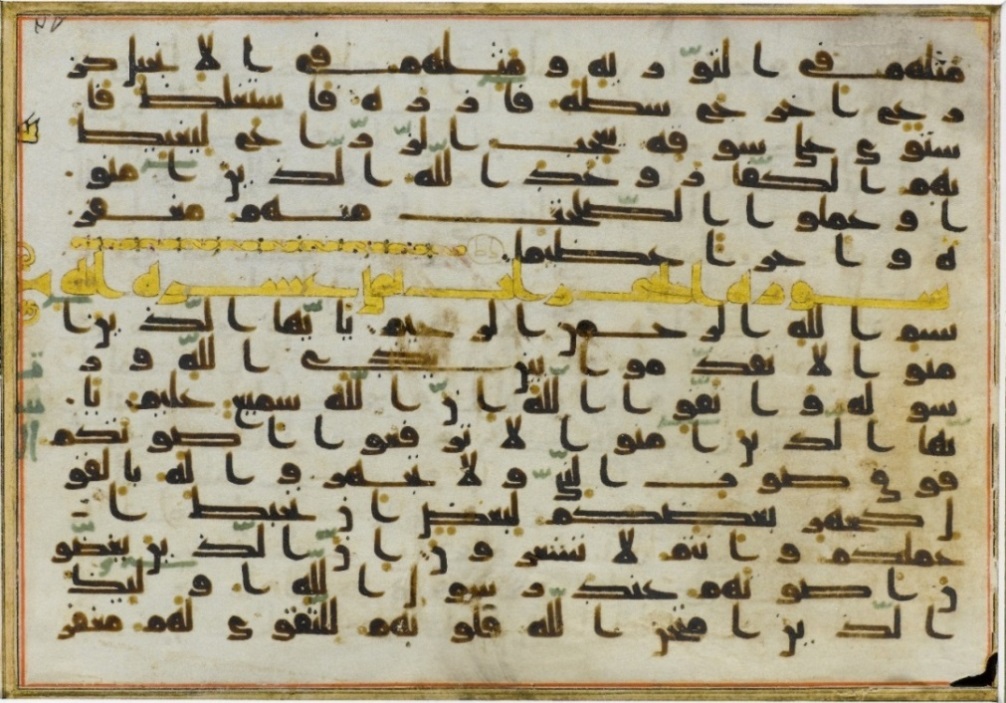 مثلهم في التورية ومثلهم في الانجيل كز
رع اخرج شطه فازره فاستغلظ فا
ستوى على سوقه يعجب الزراع ليغيظ
بهم الكفار وعد الله الذين امنو
ا وعملوا الصلحت منهم مغفر
ة واجرا عظيما
سورة الحجرات ثماني عشرة اية
بسم الله الرحمن الرحيم يايها الذين ا
منوا لا تقدموا بين يدي الله ور
سوله واتقوا الله ان الله سميع عليم يا
يها الذين امنوا لا ترفعوا اصوتكم
فوق صوت النبي ولا تجهروا له بالقو
ل كجهر بعضكم لبعض ان تحبط ا
عملكم وانتم لا تشعرون ان الذين يغضو
ن اصوتهم عند رسول الله اوليك
الذين امتحن الله قلوبهم للتقوى لهم مغفر